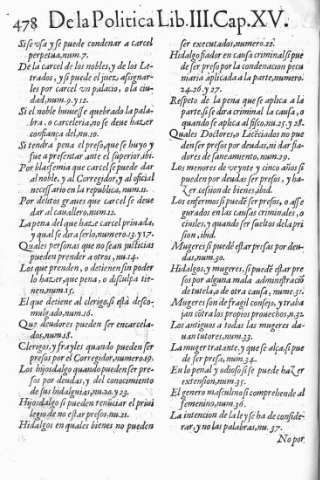 478 De la Politica Lib. III. Cap. XV.
Si se usa y se puede condenar a carcel
perpetua, num. 7.
De la carcel de los nobles, y de los Le-
trados, y si puede el juez, asignar-
les por carcel vn palacio, o la ciu-
dad, num. 9. y 12.
Si el noble huuiesse quebrado la pala-
bra, o carceleria, no se deue hazer
confiança del, nu. 10.
Si tendra pena el preso, que se huyo y
fue a presentar ante el superior, ibi.
Por blasfemia que carcel se puede dar
al noble, y al Corregidor, y al oficial
necessario en la republica, num. 11.
Por delitos graues que carcel se deue
dar al cauallero, num. 12.
La pena del que haze carcel priuada,
y qual se dira serlo, numero. 13. y 17.
Quales personas que no sean justicias
pueden prender a otros, nu. 14.
Los que prenden, o detienen sin poder
lo hazer, que pena, o disculpa tie-
nen, num. 15.
El que detiene al clerigo, si está desco-
mulgado, num. 16.
Que deudores pueden ser encarcela-
dos, num. 18.
Clerigos, y frayles quando pueden ser
presos por el Corregidor, numero. 19.
Los hijosdalgo quando pueden ser pre-
sos por deudas, y del conocimiento
de sus hidalguias, nu. 20. y 23.
Hijosdalgo si pueden renũciar el priui
legio de no estar presos, nu. 21.
Hidalgos en quales bienes no pueden
ser executados, numero. 22.
Hidalgo fiador en causa criminal si pue
de ser preso por la condenacion pecu
niaria aplicada a la parte, numero.
24. 26. y 27.
Respeto de la pena que se aplica a la
parte, si se dira criminal la causa, o
quando se aplica al fisco, nu. 25. y 28.
Quales Doctores, o Licẽciados no pue
den ser presos por deudas, ni dar fia-
dores de saneamiento, num. 29.
Los menores de veynte y cinco años si
pueden por deudas ser presos, y ha-
zer cession de bienes, ibid.
Los enfermos si puedẽ ser presos, o asse
gurados en las causas criminales, o
ciuiles, y quando ser sueltos de la pri
sion, ibid.
Mugeres si puedẽ estar presas por deu-
das, num. 30.
Hidalgos, y mugeres, si puedẽ estar pre
sos por alguna mala administraciõ
de tutela, o de otra causa, nume. 31.
Mugeres son de fragil consejo, y traba
jan cõtra los propios prouechos, n. 32.
Los antiguos a todas las mugeres da-
uan tutores, num. 33.
La muger tratante, y que se alça, si pue
de ser presa, num. 34.
En lo penal y odioso si se puede hazer
extension, num. 35.
El genero masculino si comprehende al
femenino, num. 36.
La intencion de la ley se ha de conside-
rar, y no las palabras, nu. 37.
No por